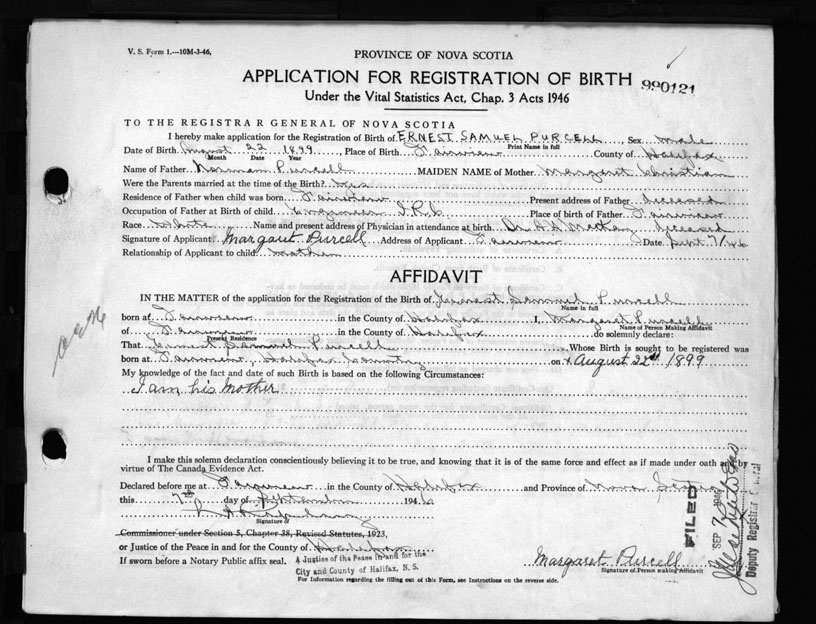 V. S. Form 1.—10M-3-46.
PROVINCE OF NOVA SCOTIA
APPLICATION FOR REGISTRATION OF BIRTH 990121
Under the Vital Statistics Act, Chap. 3 Acts 1946
TO THE REGISTRAR GENERAL OF NOVA SCOTIA
I hereby make application for the Registration of Birth of ERNEST SAMUEL PURCELL, Sex Male
Print Name in full
Date of Birth August 22 1899 Place of Birth Fairview County of Halifax
Month Date Year
Name of Father Norman Purcell MAIDEN NAME of Mother Margaret Christian
Were the Parents married at the time of the Birth? Yes
Residence of Father when child was born Fairview Present address of Father deceased
Occupation of Father at Birth of child Engineer Place of birth of Father Fairview
Race White Name and present address of Physician in attendance at birth Dr. deceased
Signature of Applicant Margaret Purcell Address of Applicant Fairview Date Sept 7/46
Relationship of Applicant to child mother
AFFIDAVIT
IN THE MATTER of the application for the Registration of the Birth of Ernest Samuel Purcell
Name in full
born at Fairview in the County of Halifax I, Margaret Purcell
Name of Person Making Affidavit
of Fairview in the County of Halifax do solemnly declare:
Present Residence
That Ernest Samuel Purcell Whose Birth is sought to be registered was
born at Fairview, Halifax County on August 22nd 1899
My knowledge of the fact and date of such Birth is based on the following Circumstances:
I am his Mother
I make this solemn declaration conscientiously believing it to be true, and knowing that it is of the same force and effect as if made under oath and by
virtue of The Canada Evidence Act.
Declared before me at Fairview in the County of Halifax and Province of Nova Scotia
this 7th day of September 1946
Signature of
Commissioner under Section 5, Chapter 38, Revised Statutes, 1923,
or Justice of the Peace in and for the County of Halifax
A Justice of the Peace in and for the
City and County of Halifax, N. S.
If sworn before a Notary Public affix seal.
Margaret Purcell
Signature of Person making Affidavit
For Information regarding the filling out of this Form, see Instructions on the reverse side.
FILED
SEP 1946
Deputy Registrar General